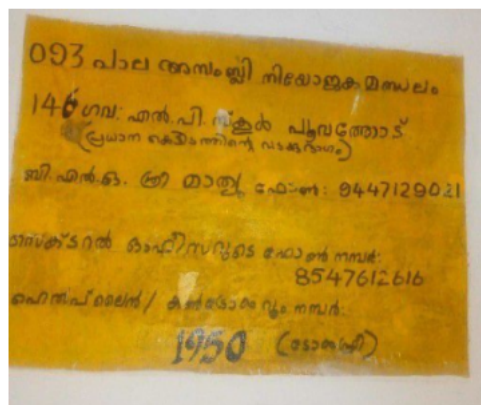 093 പാല അസംബ്ലി നിയോജകമണ്ഡലം
146 ഗവ: എൽ.പി.സ്കൂൾ പൂവത്തോട്
(പ്രധാന കെട്ടിടത്തിന്റെ വടക്കുഭാഗം)
ബി.എൽ.ഒ. ശ്രീ മാത്യു ഫോൺ: 9447129021
സെക്ടറൽ ഓഫീസറുടെ ഫോൺ നമ്പർ:
8547612616
ഹെൽപ് ലൈൻ / കൺട്രോൾ റൂം നമ്പർ:
1950 (ടോൾഫ്രീ)